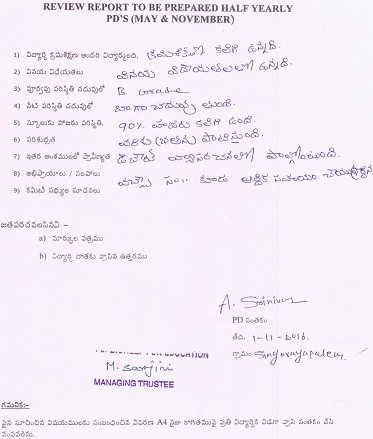 REVIEW REPORT TO BE PREPARED HALF YEARLY
PD'S (MAY & NOVEMBER)
1) విద్యార్థి క్రమశిక్షణ అందరి విద్యార్థులది. క్రమశిక్షణతో కలిగి ఉన్నది.
2) వినయ విధేయతలు వినయ విధేయతలలో ఉన్నది.
3) పూర్వపు పరిస్థితి చదువులో B Grade
4) నేటి పరిస్థితి చదువులో బాగా చదువు తుంది.
5) స్కూలుకు హాజరు పరిస్థితి. 90% హాజరు కలిగి ఉంది.
6) పరిశుభ్రత పరిశుభ్రతను పాటిస్తుంది.
7) ఇతర అంశములలో ప్రావీణ్యత డిబేట్ వ్యాసరచనలలో పాల్గొంటుంది.
8) అభిప్రాయాలు / సలహాలు వచ్చే సం॥ కూడ ఆర్థిక సహాయం
9) కమిటీ సభ్యుల సూచనలు
జతపరచవలసినవి -
a) మార్కుల పత్రము
b) విద్యార్థి దాతకు వ్రాసిన ఉత్తరము
A. Srinivas
PD సంతకం
తేది. 1-11-2016.
గ్రామం
EDUCATION
M. Sarojini
MANAGING TRUSTEE
గమనిక:-
పైన సూచించిన విషయములకు సంబంధించిన వివరణ A4 సైజు కాగితముపై ప్రతి విద్యార్థికి విడిగా వ్రాసి సంతకం చేసి
పంపవలెను.